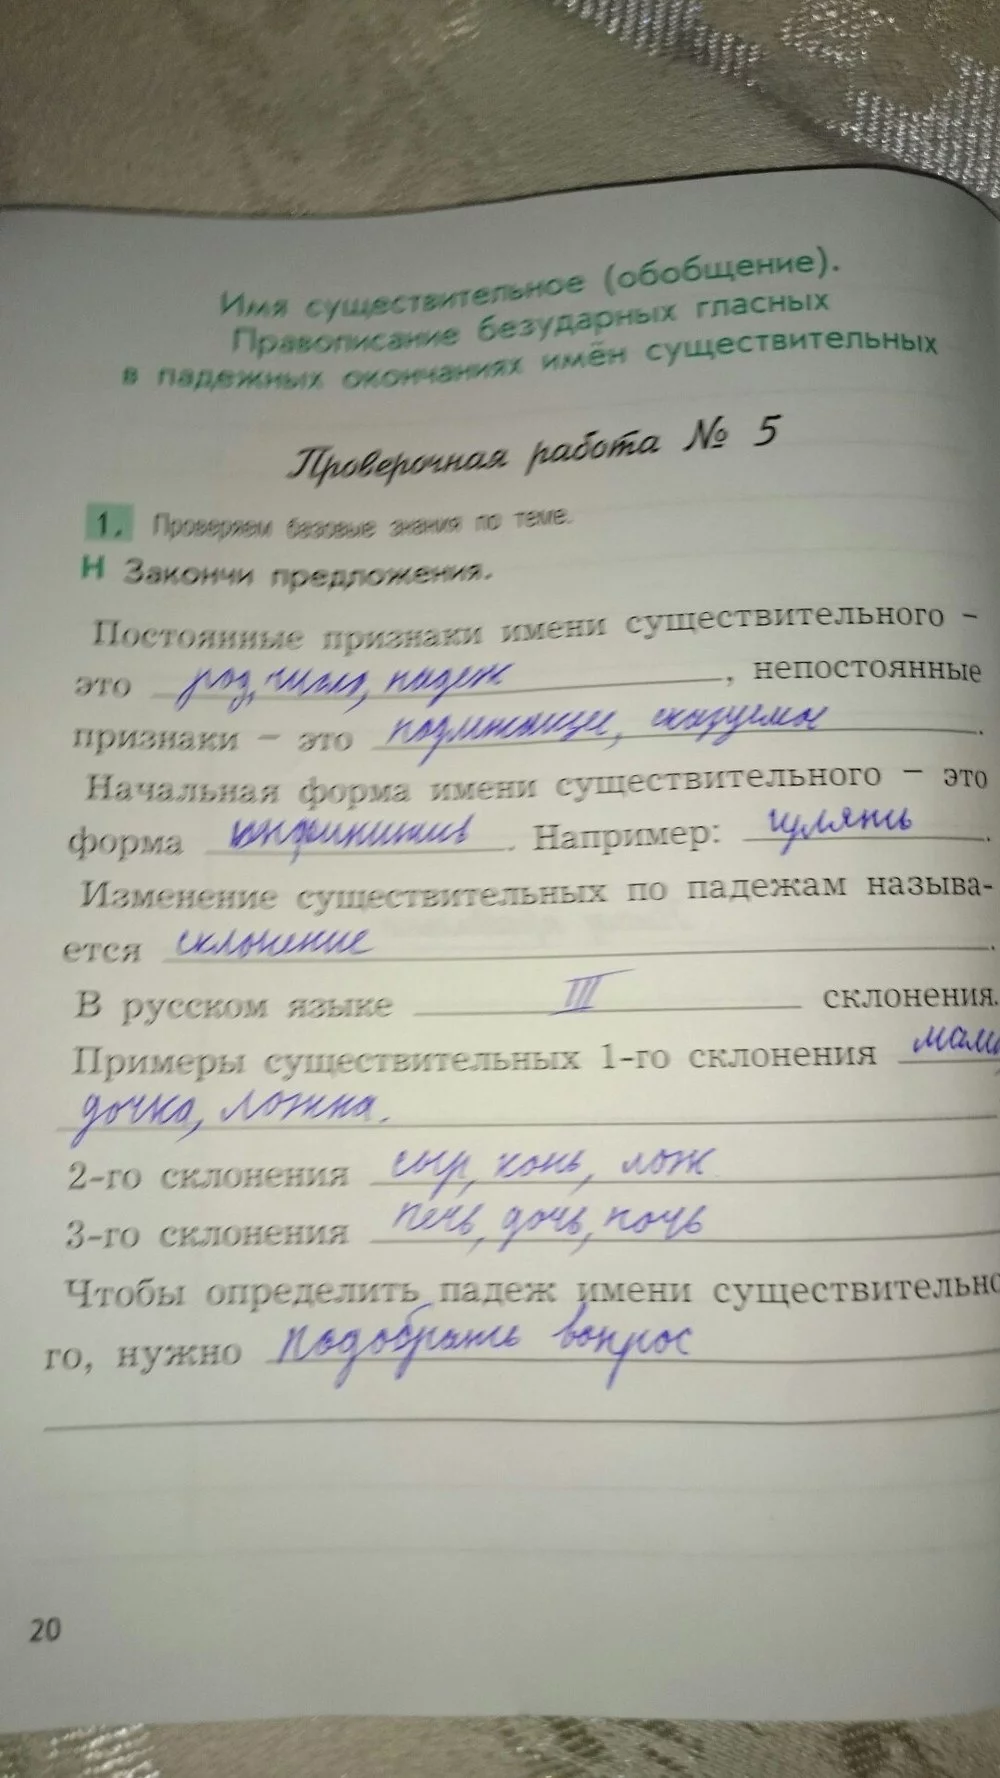 Имя существительное (обобщение).
Правописание безударных гласных
в падежных окончаниях имён существительных
Проверочная работа № 5
1. Проверяем базовые знания по теме.
Н Закончи предложения.
Постоянные признаки имени существительного –
это род, число, падеж, непостоянные
признаки – это подлежащее, сказуемое.
Начальная форма имени существительного – это
форма инфинитив. Например: гулять.
Изменение существительных по падежам называ-
ется склонение.
В русском языке III склонения.
Примеры существительных 1-го склонения мама,
дочка, ложка.
2-го склонения сыр, конь, лож
3-го склонения печь, дочь, ночь
Чтобы определить падеж имени существительно
го, нужно подобрать вопрос
20